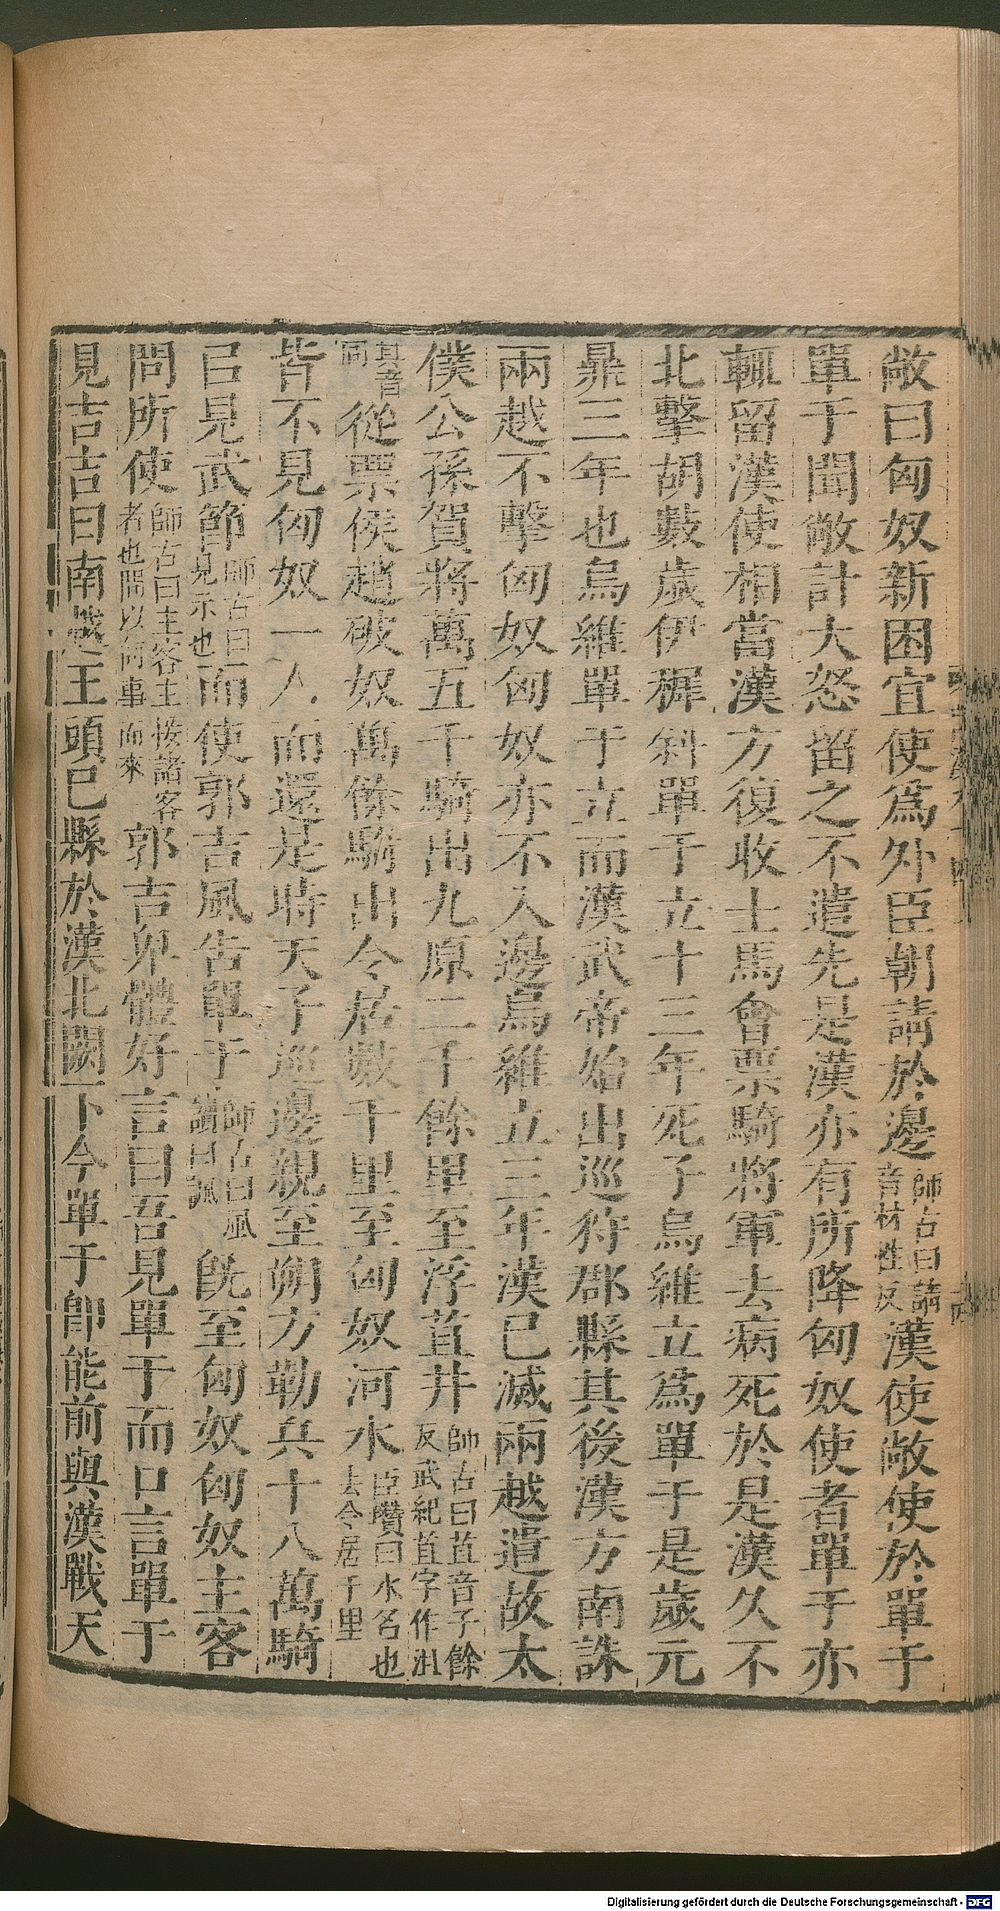 敞曰匈奴新困宜使爲外臣朝請於邊師古曰請音材姓反漢使敞使於單于
單于聞敞計大怒留之不遣先是漢亦有所降匈奴使者單于亦
輒留漢使相當漢方復收士馬會票騎將軍去病死於是漢久不
北擊胡數歲伊穉斜單于立十三年死子烏維立爲單于是歲元
鼎三年也烏維單于立而漢武帝始出巡狩郡縣其後漢方南誅
兩越不擊匈奴匈奴亦不入邊烏維立三年漢已滅兩越遣故太
僕公孫賀將萬五千騎出九原二千餘里至浮苴井師古曰苴音子餘反武紀苴字作沮
其音同從票侯趙破奴萬餘騎出令居數千里至匈奴河水臣瓚曰水名也去令居千里
皆不見匈奴一人而還是時天子巡邊親至朔方勒兵十八萬騎
㠯見武節師古曰見示也而使郭吉風告單于師古曰風讀曰諷旣至匈奴匈奴主客
問所使師古曰主客主接諸客者也問以何事而來郭吉卑體好言曰吾見單于而口言單于
見吉吉曰南越王頭已縣於漢北闕下今單于卽能前與漢戰天
Digitalisierung gefördert durch die Deutsche Forschungsgemeinschaft - DFG